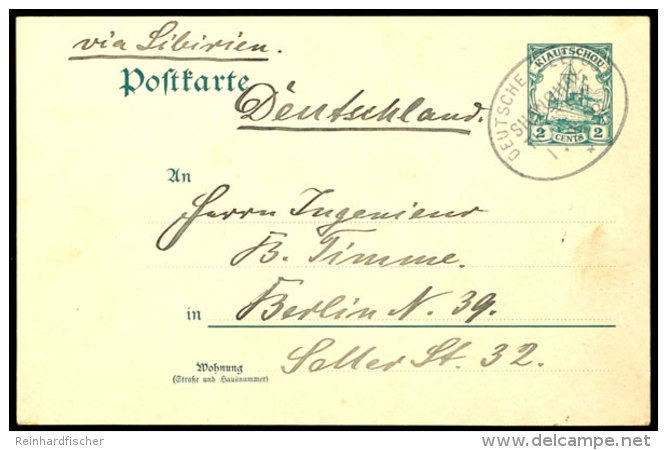 via Sibirien.
Postkarte
Deutschland.
KIAUTSCHOU
2 CENTS 2
DEUTSCHE
An
Herrn Ingenieur
B. Timme.
in Berlin N. 39.
Wohnung
(Straße und Hausnummer)
Seller St. 32.
Reinhardfischer
delcampe.net